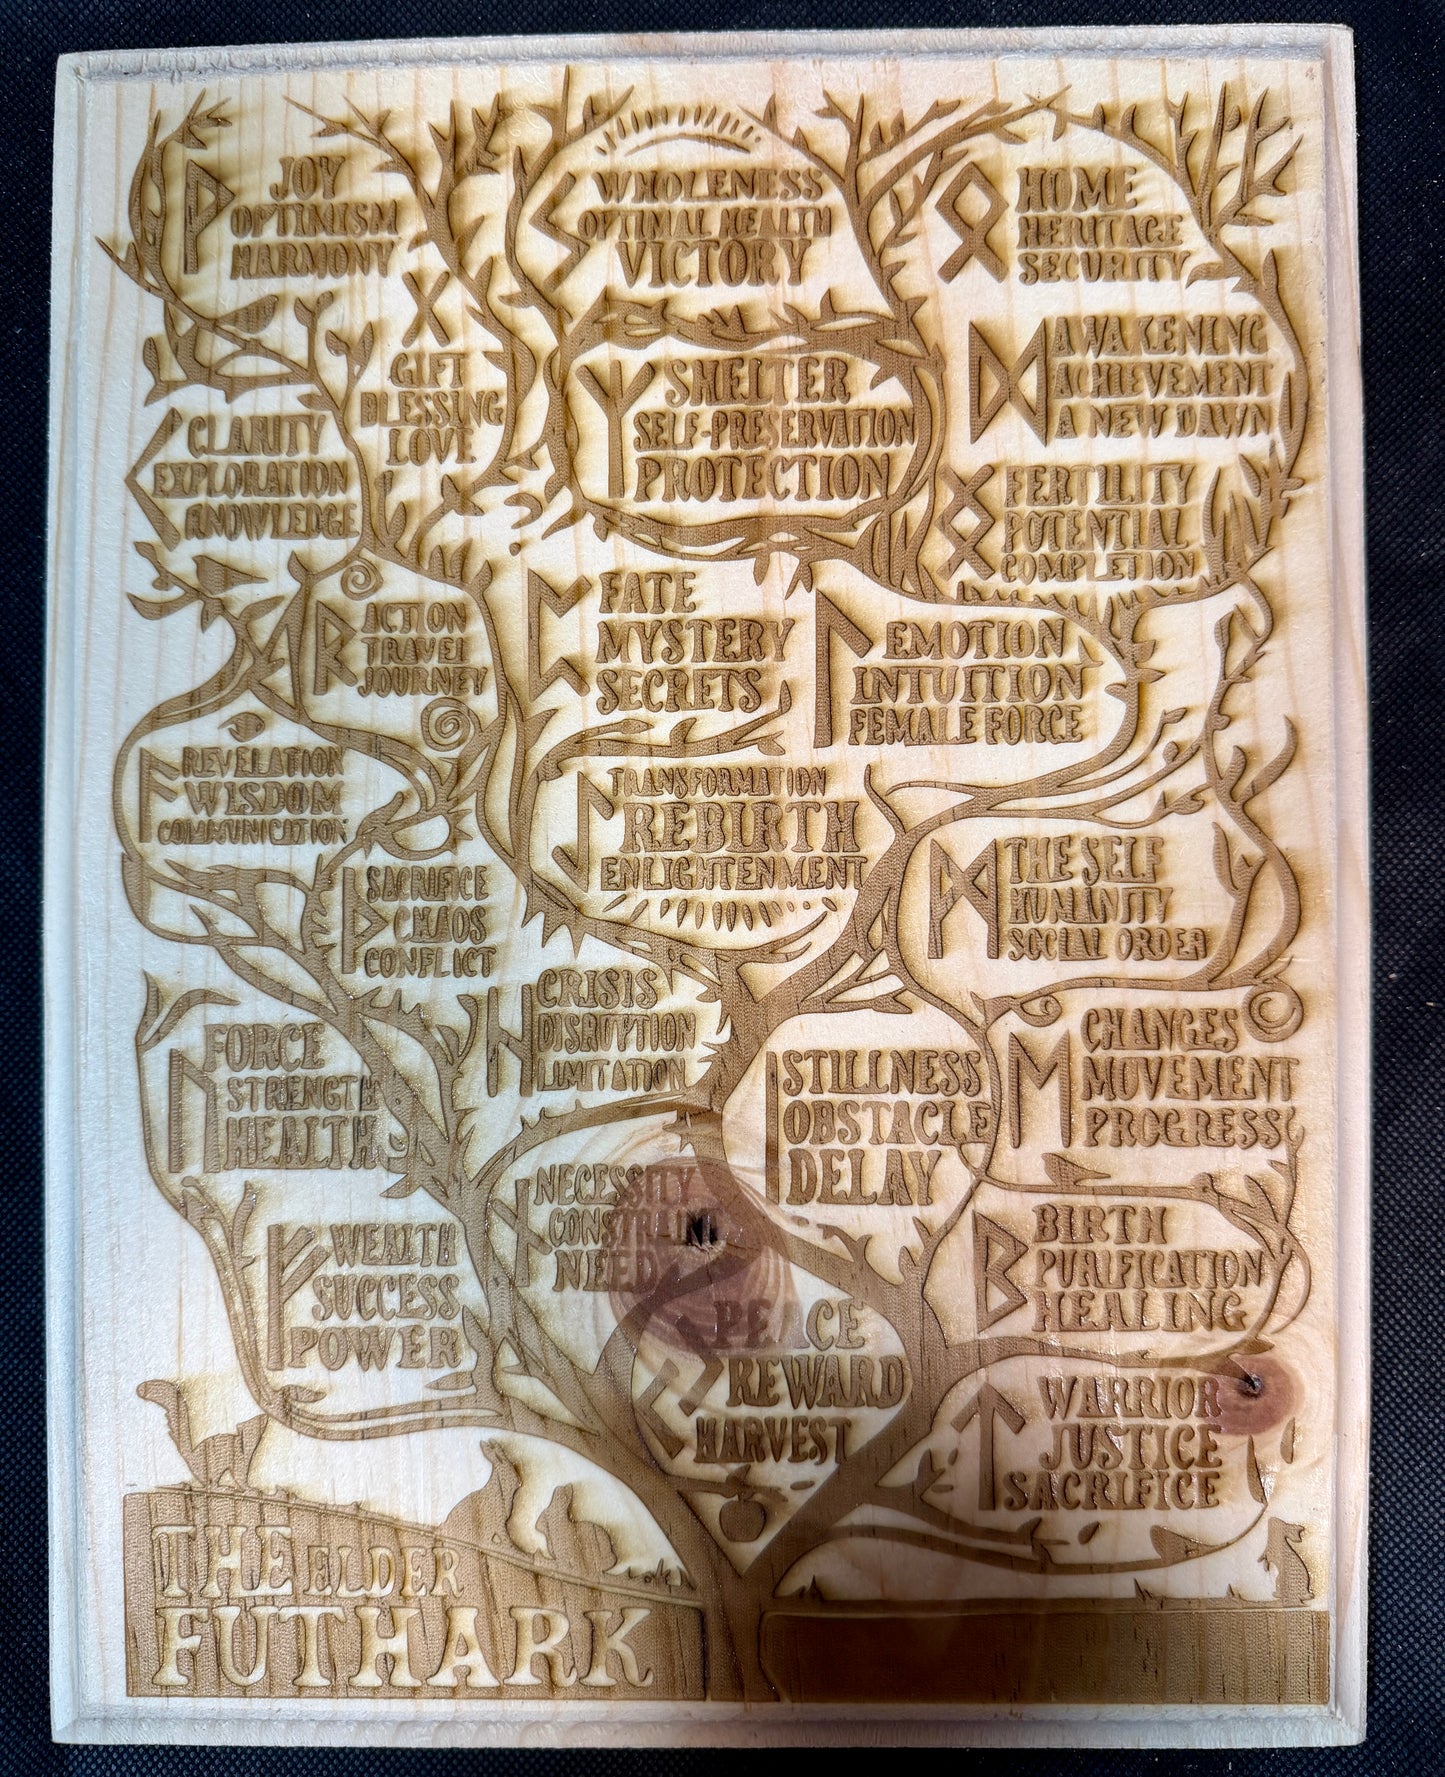 ᚹ JOY
OPTIMISM
HARMONY
ᛊ WHOLENESS
OPTIMAL HEALTH
VICTORY
ᛟ HOME
HERITAGE
SECURITY
ᚷ
GIFT
BLESSING
LOVE
ᛉ SHELTER
SELF-PRESERVATION
PROTECTION
ᛞ AWAKENING
ACHIEVEMENT
A NEW DAWN
ᚲ CLARITY
EXPLORATION
KNOWLEDGE
ᛜ FERTILITY
POTENTIAL
COMPLETION
ᚱ ACTION
TRAVEL
JOURNEY
ᛈ FATE
MYSTERY
SECRETS
ᛚ EMOTION
INTUITION
FEMALE FORCE
ᚨ REVELATION
WISDOM
COMMUNICATION
ᛇ TRANSFORMATION
REBIRTH
ENLIGHTENMENT
ᛗ THE SELF
HUMANITY
SOCIAL ORDER
ᚦ SACRIFICE
CHAOS
CONFLICT
ᚺ CRISIS
DISRUPTION
LIMITATION
ᚢ FORCE
STRENGTH
HEALTH
ᛁ STILLNESS
OBSTACLE
DELAY
ᛖ CHANGES
MOVEMENT
PROGRESS
ᚾ NECESSITY
CONSTRAINT
NEED
ᚠ WEALTH
SUCCESS
POWER
ᛒ BIRTH
PURIFICATION
HEALING
ᛃ PEACE
REWARD
HARVEST
ᛏ WARRIOR
JUSTICE
SACRIFICE
THE ELDER
FUTHARK